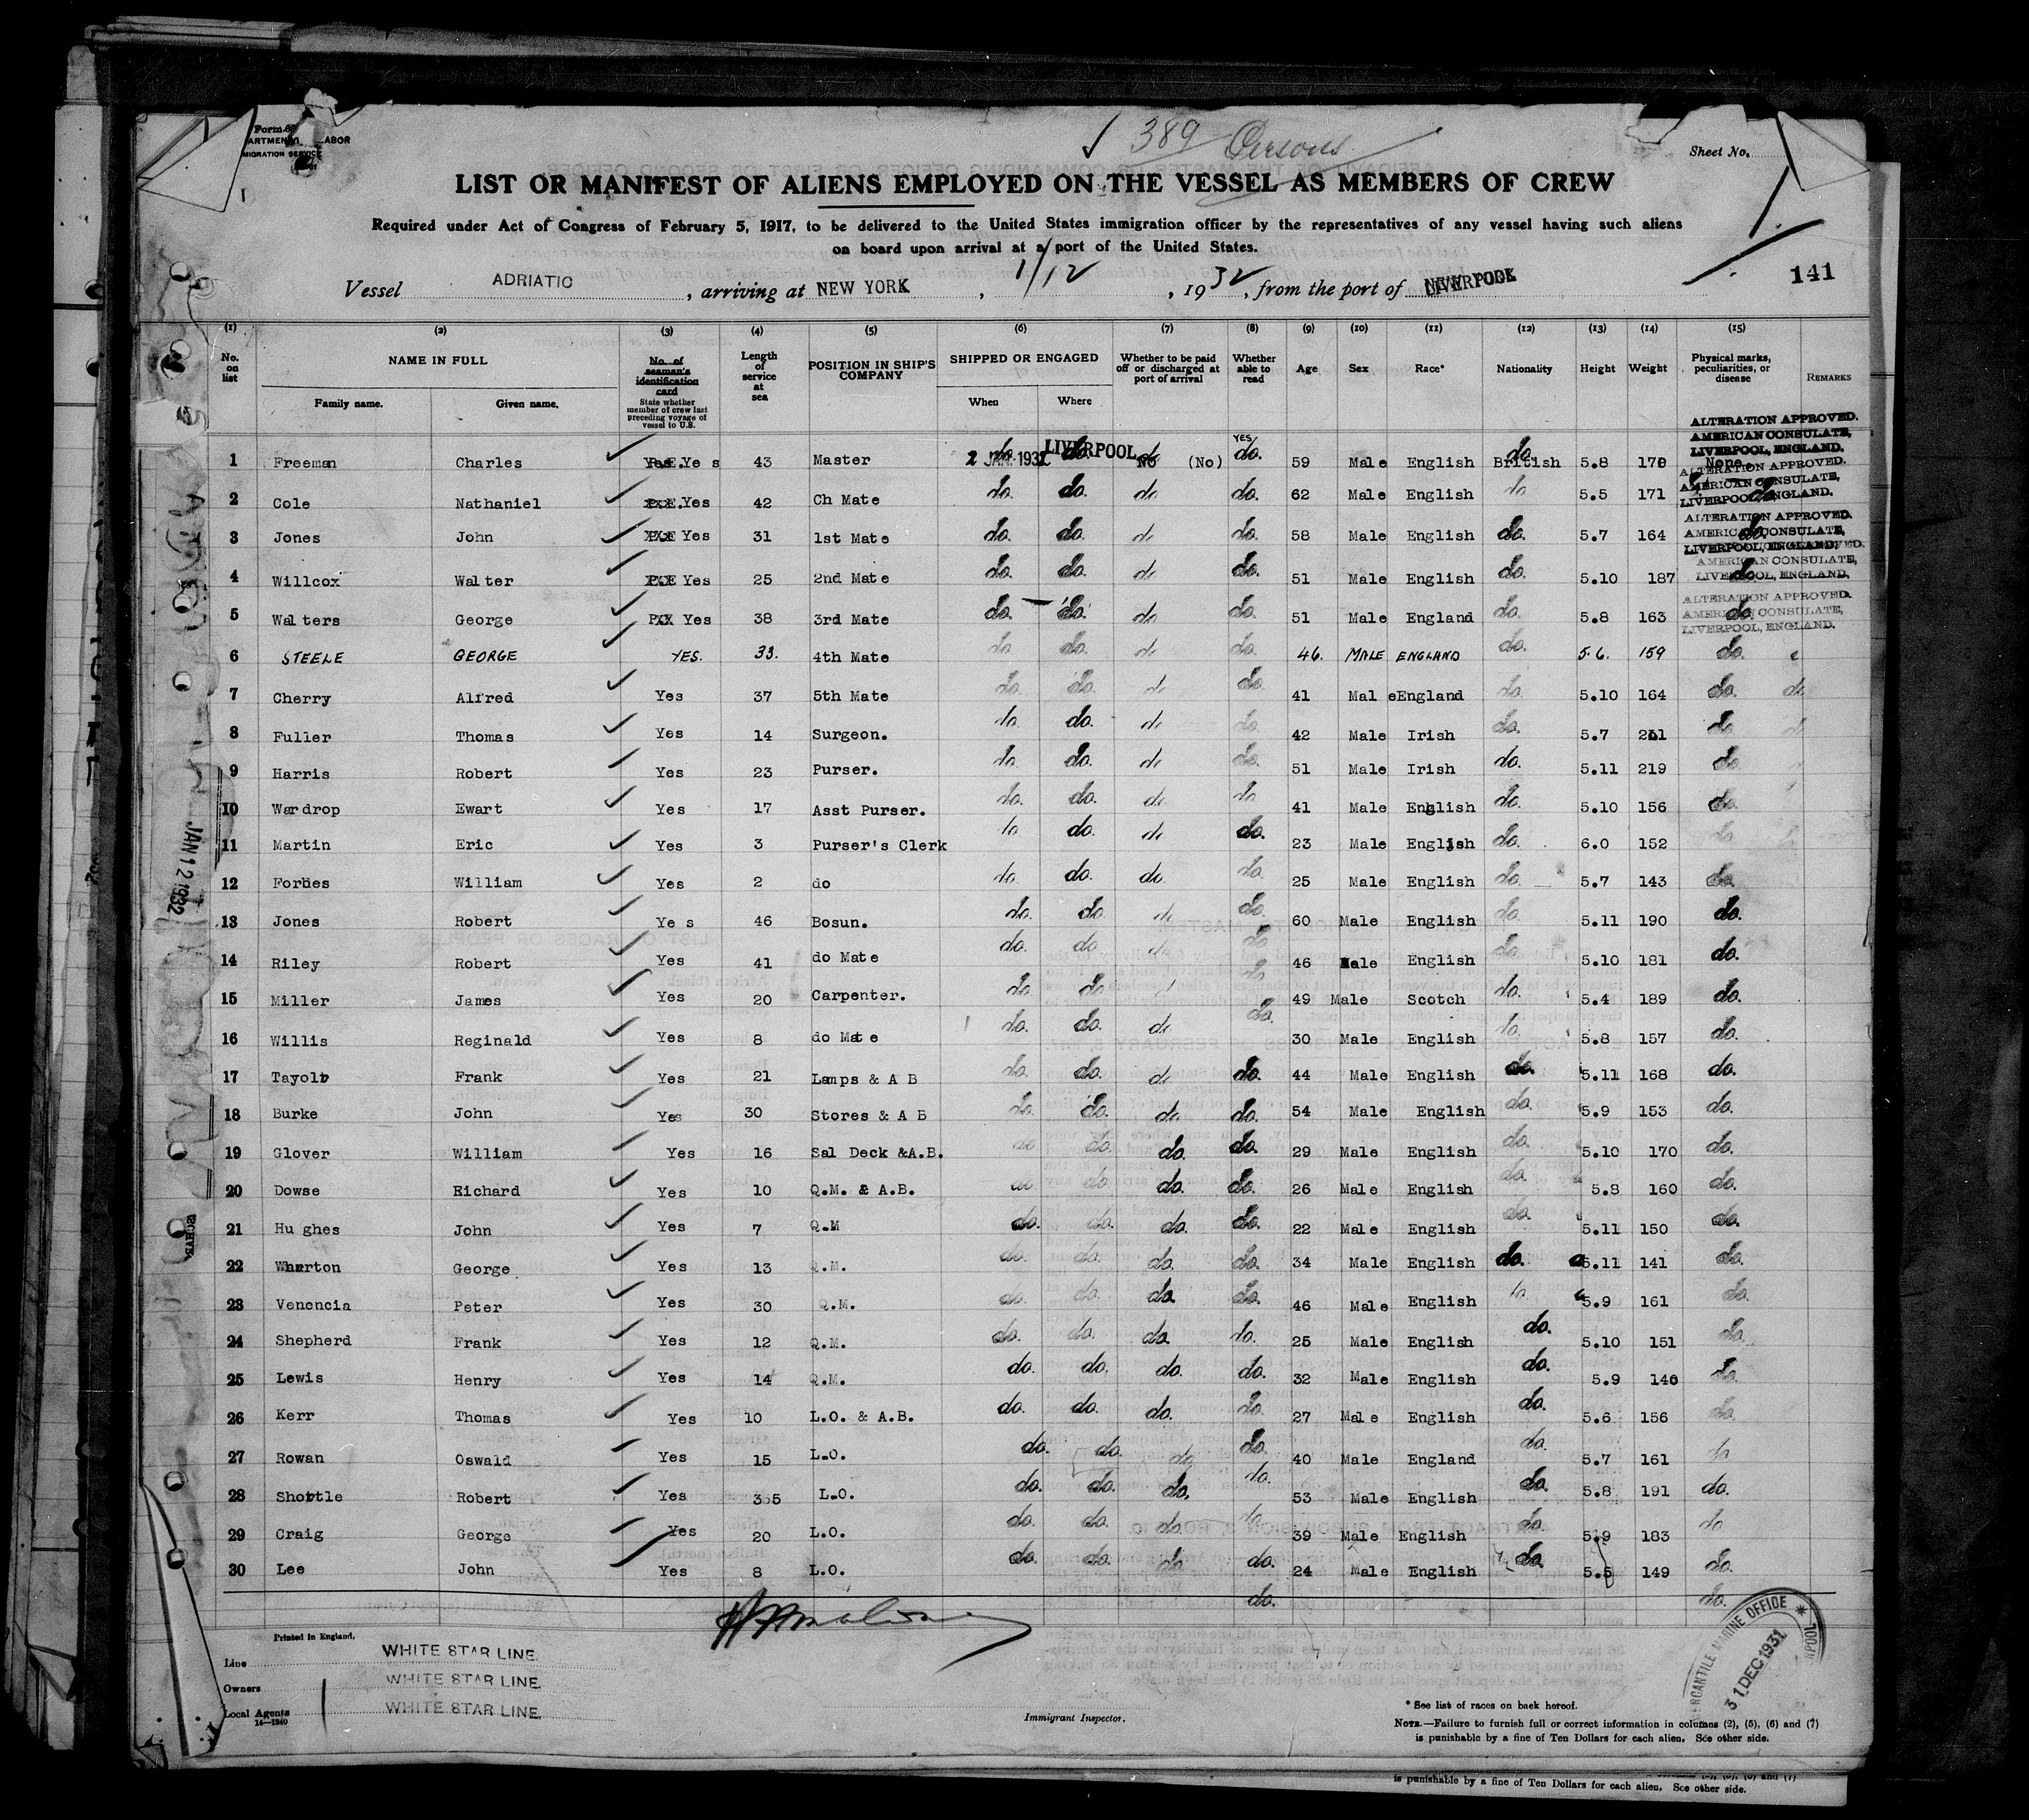 ✓ 389 Persons
Form 68
DEPARTMENT LABOR
IMMIGRATION SERVICE
Sheet No. 1
LIST OR MANIFEST OF ALIENS EMPLOYED ON THE VESSEL AS MEMBERS OF CREW
Required under Act of Congress of February 5, 1917, to be delivered to the United States immigration officer by the representatives of any vessel having such aliens
on board upon arrival at a port of the United States.
Vessel ADRIATIC, arriving at NEW YORK, 1/12, 1932, from the port of LIVERPOOL
141
(1) (2) (3) (4) (5) (6) (7) (8) (9) (10) (11) (12) (13) (14) (15)
No. on list NAME IN FULL Family name. Given name. No. of seaman's identification card State whether member of crew last preceding voyage of vessel to U.S. Length of service at sea POSITION IN SHIP'S COMPANY SHIPPED OR ENGAGED When Where Whether to be paid off or discharged at port of arrival Whether able to read Age Sex Race* Nationality Height Weight Physical marks, peculiarities, or disease REMARKS
ALTERATION APPROVED.
AMERICAN CONSULATE,
LIVERPOOL, ENGLAND.
1 Freeman Charles Yes 43 Master 2 JAN 1932 LIVERPOOL No (No) YES do. 59 Male English British 5.8 170 None.
ALTERATION APPROVED.
AMERICAN CONSULATE,
LIVERPOOL, ENGLAND.
2 Cole Nathaniel Yes 42 Ch Mate do. do. do do. 62 Male English do 5.5 171 do.
ALTERATION APPROVED.
AMERICAN CONSULATE,
LIVERPOOL, ENGLAND.
3 Jones John Yes 31 1st Mate do. do. do do. 58 Male English do. 5.7 164 do.
AMERICAN CONSULATE,
LIVERPOOL, ENGLAND.
4 Willcox Walter Yes 25 2nd Mate do. do. do do. 51 Male English do. 5.10 187 do.
ALTERATION APPROVED.
AMERICAN CONSULATE,
LIVERPOOL, ENGLAND.
5 Walters George Yes 38 3rd Mate do. do. do do. 51 Male England do. 5.8 163 do.
6 STEELE GEORGE YES. 33. 4th Mate do. do. do do. 46. MALE ENGLAND do. 5.6. 159 do.
7 Cherry Alfred Yes 37 5th Mate do. do. do do. 41 Male England do. 5.10 164 do. do
8 Fuller Thomas Yes 14 Surgeon. do. do. do do. 42 Male Irish do. 5.7 211 do. do
9 Harris Robert Yes 23 Purser. do. do. do do. 51 Male Irish do. 5.11 219 do.
10 Wardrop Ewart Yes 17 Asst Purser. do. do. do do 41 Male English do. 5.10 156 do.
11 Martin Eric Yes 3 Purser's Clerk do do. do do. 23 Male English do. 6.0 152 do
12 Forbes William Yes 2 do do. do. do. do. 25 Male English do. 5.7 143 do.
13 Jones Robert Yes 46 Bosun. do. do. do do. 60 Male English do. 5.11 190 do.
14 Riley Robert Yes 41 do Mate do. do. do do 46 Male English do. 5.10 181 do.
15 Miller James Yes 20 Carpenter. do. do do. 49 Male Scotch do. 5.4 189 do.
16 Willis Reginald Yes 8 do Mate do. do. do do. 30 Male English do. 5.8 157 do.
17 Tayolr Frank Yes 21 Lamps & A B do. do. do do. 44 Male English do. 5.11 168 do.
18 Burke John Yes 30 Stores & A B do. do. do. do. 54 Male English do. 5.9 153 do.
19 Glover William Yes 16 Sal Deck &A.B. do do. do. do. 29 Male English do. 5.10 170 do.
20 Dowse Richard Yes 10 Q.M. & A.B. do do. do. do. 26 Male English do. 5.8 160 do.
21 Hughes John Yes 7 Q.M do. do. do. do. 22 Male English do. 5.11 150 do.
22 Wharton George Yes 13 Q.M. do. do. do. do. 34 Male English do. 5.11 141 do.
23 Venencia Peter Yes 30 Q.M. do. do. do. do. 46 Male English do. 5.9 161 do.
24 Shepherd Frank Yes 12 Q.M. do. do. do. do. 25 Male English do. 5.10 151 do.
25 Lewis Henry Yes 14 Q.M. do. do. do. do. 32 Male English do. 5.9 140 do.
26 Kerr Thomas Yes 10 L.O. & A.B. do. do. do. do. 27 Male English do. 5.6 156 do.
27 Rowan Oswald Yes 15 L.O. do. do. do. do. 40 Male England do. 5.7 161 do
28 Shottle Robert Yes 35 L.O. do. do. do. do. 53 Male English do. 5.8 191 do.
29 Craig George Yes 20 L.O. do. do. do. do. 39 Male English do. 5.9 183 do
30 Lee John Yes 8 L.O. do. do. do. do. 24 Male English do. 5.5 149 do.
do. do.
JAN 12 1932
Printed in England.
Line WHITE STAR LINE.
Owners WHITE STAR LINE.
Local Agents WHITE STAR LINE.
14—1240
Immigrant Inspector.
MERCANTILE MARINE OFFICE * LIVERPOOL
31 DEC 1931
* See list of races on back hereof.
NOTE.—Failure to furnish full or correct information in columns (2), (5), (6) and (7)
is punishable by a fine of Ten Dollars for each alien. See other side.
is punishable by a fine of Ten Dollars for each alien. See other side.